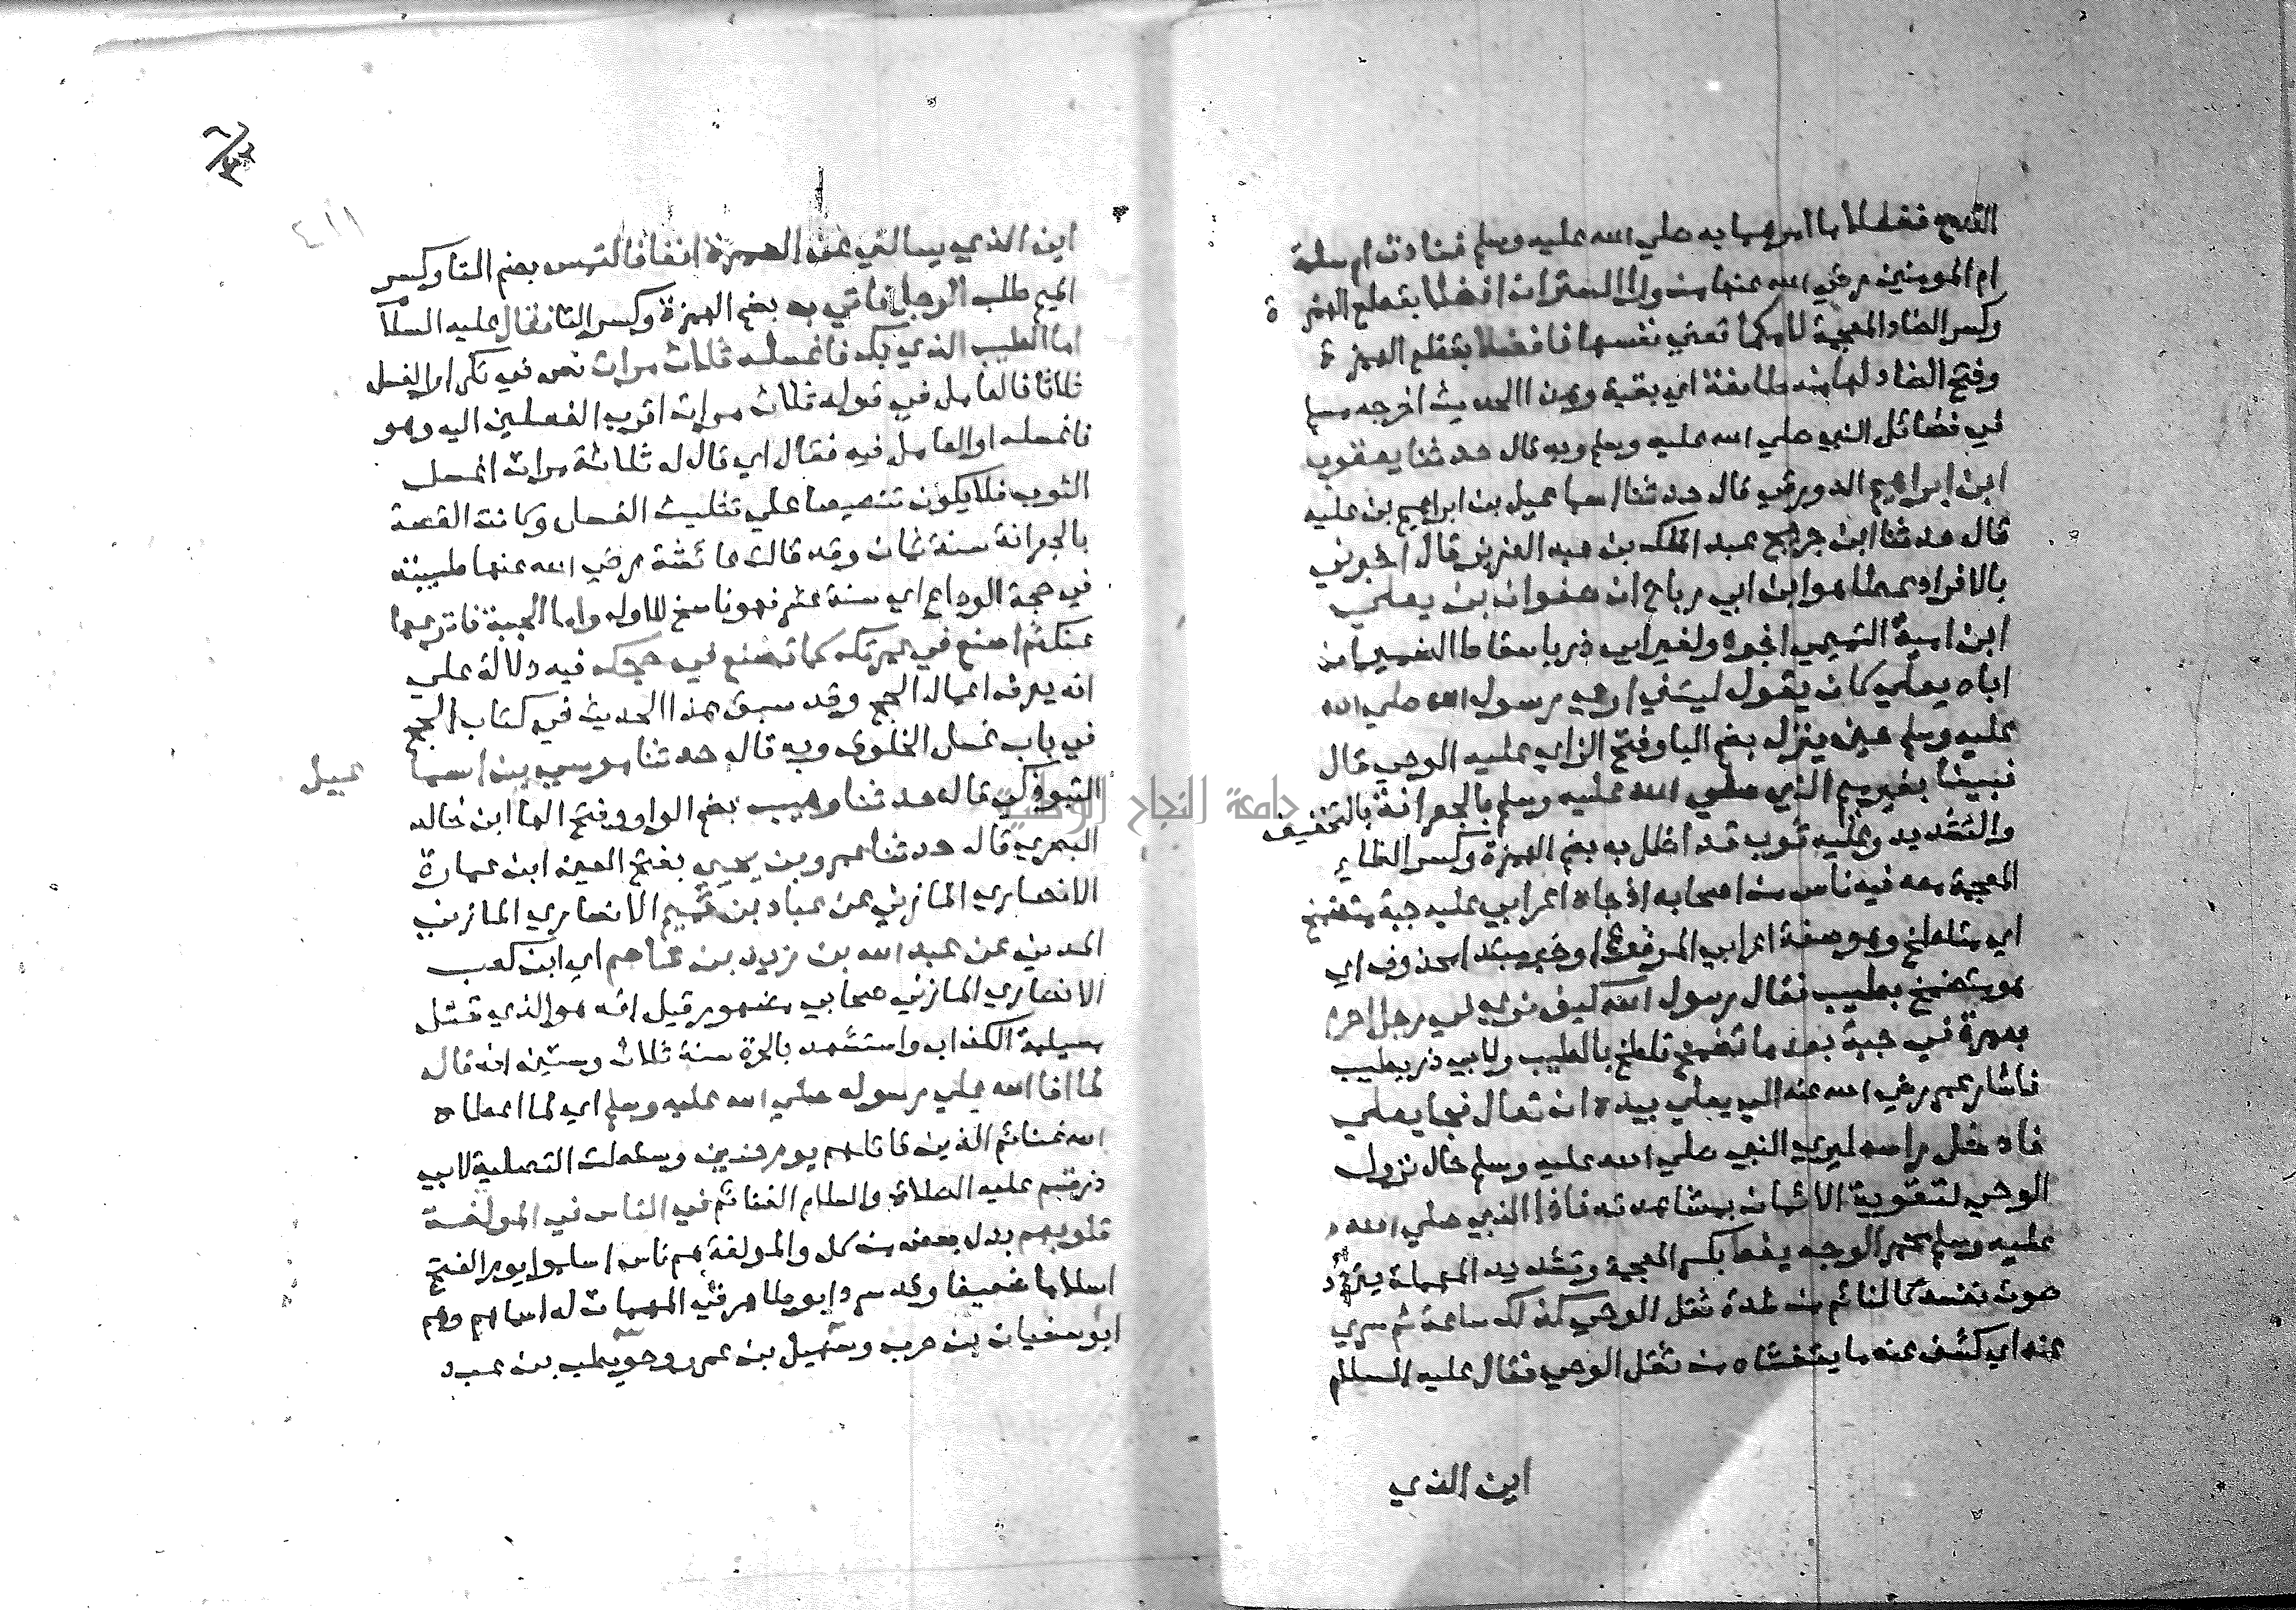 القدح ففعلا ما امرهما به صلي الله عليه وسلم فنادت ام سلمة
ام المومنين رضي الله عنها من ورا الستر ان افضلا بقطع الهمزة
وكسر الضاد المعجمة لامكما تعني نفسها فافضلا بقطع الهمزة
وفتح الضاد لها منه طائفة اي بقية وهذا الحديث اخرجه مسلم
في فضائل النبي صلي الله عليه وسلم وبه قال حدثنا يعقوب
ابن ابراهيم الدورقي قال حدثنا اسماعيل بن ابراهيم بن علية
قال حدثنا ابن جريج عبد الملك بن عبد العزيز قال اخبرني
بالافراد عطا هو ابن ابي رباح ان صفوان بن يعلي
ابن امية التميمي اخبره ولغير ابي ذر باسقاط الضمير ان
اباه يعلي كان يقول ليتني اري رسول الله صلي الله
عليه وسلم حين ينزل بضم اليا وفتح الزاي عليه الوحي قال
فبينا بغير ميم النبي صلي الله عليه وسلم بالجعرانة بالتخفيف
والتشديد وعليه ثوب قد اظل به بضم الهمزة وكسر الظاء
المعجمة معه فيه ناس من اصحابه اذ جاه اعرابي عليه جبة متضمخ
اي متلطخ وهو صفة اعرابي المرفوع او خبر مبتدا محذوف اي
هو متضمخ بطيب فقال يرسول الله كيف تري في رجل احرم
بعمرة في جبة بعد ما تضمخ تلطخ بالطيب ولابي ذر بطيب
فاشار عمر رضي الله عنه الي يعلي بيده ان تعال فجا يعلي
فادخل راسه ليري النبي صلي الله عليه وسلم حال نزول
الوحي لتقوية الايمان بمشاهدته فاذا النبي صلي الله
عليه وسلم محمر الوجه يغط بكسر المعجمة وتشديد المهملة يتردد
صوت نفسه كالنائم من شدة ثقل الوحي كذلك ساعة ثم سري
عنه اي كشف عنه ما يتغشاه من ثقل الوحي فقال عليه السلام
اين الذي
٤١١
اين الذي يسالني عن العمرة انفا فالتمس بضم التا وكسر
الميم طلب الرجل فاتي به بضم الهمزة وكسر التا فقال عليه السلام
اما الطيب الذي بك فاغسله ثلاث مرات نص في تكرار الغسل
ثلاثا فالعامل في قوله ثلاث مرات اقرب الفعلين اليه وهو
فاغسله او العامل فيه فقال اي قال له ثلاثة مرات اغسل
الثوب فلا يكون تنصيصا علي تثليث الغسل وكانت القصة
بالجعرانة سنة ثمان وقد قالت عائشة رضي الله عنها طيبته
في حجة الوداع اي سنة عشر فهو ناسخ للاول واما الجبة فانزعها
عنك ثم اصنع في عمرتك كما تصنع في حجك فيه دلالة علي
انه يعرف اعمال الحج وقد سبق هذا الحديث في كتاب الحج
في باب غسل الخلوق وبه قال حدثنا موسي بن اسما عيل
التبوذكي قال حدثنا وهيب بضم الواو وفتح الها ابن خالد
البصري قال حدثنا عمرو بن يحيي بفتح العين ابن عمارة
الانصاري المازني عن عباد بن تميم الانصاري المازني
المدني عن عبد الله بن زيد بن عاصم اي ابن كعب
الانصاري المازني صحابي مشهور قيل انه هو الذي قتل
مسيلمة الكذاب واستشهد بالحرة سنة ثلاث وستين انه قال
لما افا الله علي رسوله صلي الله عليه وسلم اي لما اعطاه
الله غنائم الذين قاتلهم يوم حنين وسقطت التصلية لابي
ذر قسم عليه الصلاة والسلام الغنائم في الناس في المولفة
قلوبهم بدل بعض من كل والمولفة هم ناس اسلموا يوم الفتح
اسلاما ضعيفا وقد سرد ابو طاهر في المبهمات له اسماهم وهم
ابو سفيان بن حرب وسهيل بن عمرو وحويطب بن عبد
جامعة النجاح الوطنية